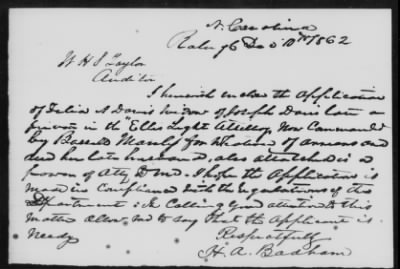 N. Carolina
Raleigh Dec 10th 1862
W H S Taylor
Auditor
I herewith enclose the Application
of Delia A Davis Widow of Joseph Davis late a
private in the "Ellis Light Artillery Now Commanded
by Manly for the of arrears and
due her late husband, also attached is a
power of Atty . I hope the Application is
made in Compliance with the regulations of the
Department: In Calling your attention to this
matter allow me to say that the Applicant is
needy
Respectfully
H. A. Badham